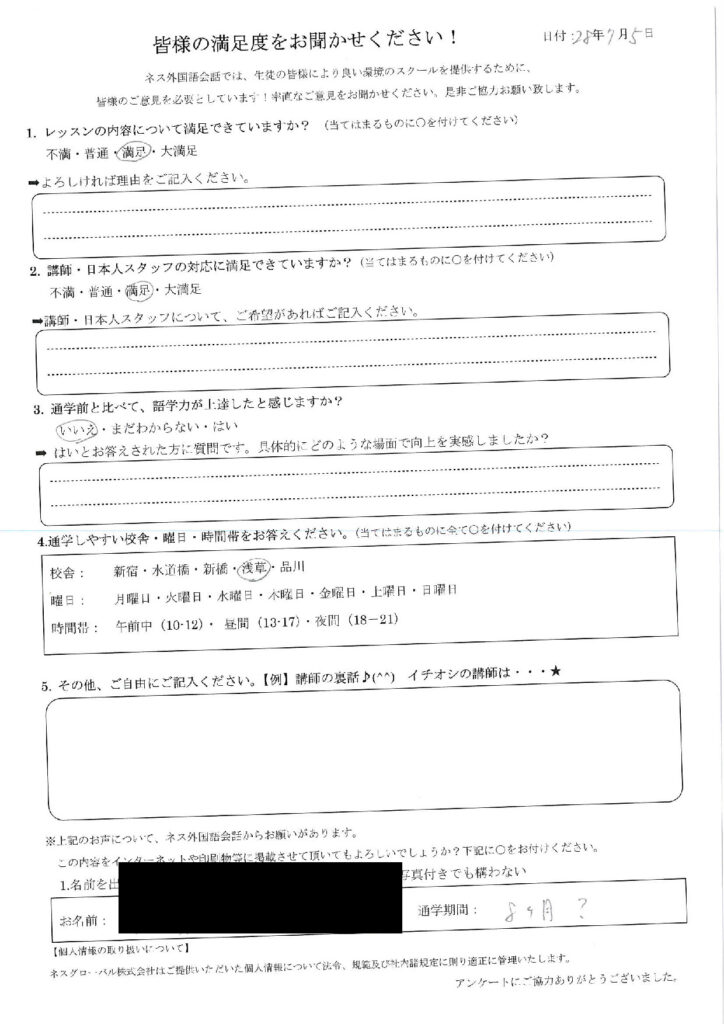 皆様の満足度をお聞かせください！
日付：28年7月5日
ネス外国語会話では、生徒の皆様により良い環境のスクールを提供するために、
皆様のご意見を必要としています！率直なご意見をお聞かせください。是非ご協力お願い致します。
1. レッスンの内容について満足できていますか？ （当てはまるものに〇を付けてください）
不満・普通・満足・大満足
➡よろしければ理由をご記入ください。
2. 講師・日本人スタッフの対応に満足できていますか？（当てはまるものに〇を付けてください）
不満・普通・満足・大満足
➡講師・日本人スタッフについて、ご希望があればご記入ください。
3. 通学前と比べて、語学力が上達したと感じますか？
いいえ・まだわからない・はい
➡ はいとお答えされた方に質問です。具体的にどのような場面で向上を実感しましたか？
4.通学しやすい校舎・曜日・時間帯をお答えください。（当てはまるものに全て〇を付けてください）
校舎： 新宿・水道橋・新橋・浅草・品川
曜日： 月曜日・火曜日・水曜日・木曜日・金曜日・土曜日・日曜日
時間帯： 午前中（10-12）・ 昼間（13-17）・夜間（18－21）
5. その他、ご自由にご記入ください。【例】講師の裏話♪(^^) イチオシの講師は・・・★
※上記のお声について、ネス外国語会話からお願いがあります。
この内容をインターネットや印刷物等に掲載させて頂いてもよろしいでしょうか？下記に〇をお付けください。
1.名前を出 写真付きでも構わない
お名前： 通学期間： 8ヶ月 ?
【個人情報の取り扱いについて】
ネスグローバル株式会社はご提供いただいた個人情報について法令、規範及び社内諸規定に則り適正に管理いたします。
アンケートにご協力ありがとうございました。